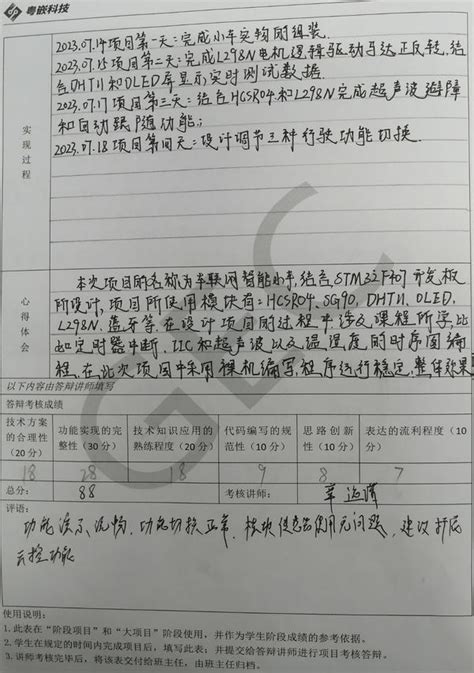 粤嵌科技
实现过程
2023.07.14项目第一天:完成小车实物的组装.
2023.07.15项目第二天:完成L298N电机逻辑驱动马达正反转,结
合DHT11和OLED屏显示实时测试数据.
2023.07.17项目第三天:结合HCSR04和L298N完成超声波避障
和自动跟随功能;
2023.07.18项目第四天:设计调节三种行驶功能切换.
心得体会
本次项目的名称为车联网智能小车,结合STM32F407开发板
所设计,项目所使用模块有:HCSR04、SG90、DHT11、OLED、
L298N、蓝牙等.在设计项目的过程中涉及课程所学,比
如定时器中断、IIC和超声波以及温湿度的时序图编
程.在此次项目中采用裸机编写,程序运行稳定,整体效果
以下内容由答辩讲师填写
答辩考核成绩
技术方案的合理性(20分) 功能实现的完整性(30分) 技术知识应用的熟练程度(20分) 代码编写的规范性(10分) 思路创新性(10分) 表达的流利程度(10分)
18 28 18 9 8 7
总分: 88 考核讲师:
评语:
功能演示流畅,功能切换正常,模块使用无问题,建议扩展
云控功能
使用说明:
1. 此表在“阶段项目”和“大项目”阶段使用,并作为学生阶段成绩的参考依据。
2. 学生在规定的时间内完成项目后,填写此表;并提交给答辩讲师进行项目考核答辩。
3. 讲师考核完毕后,将该表交付给班主任,由班主任归档。
GEC